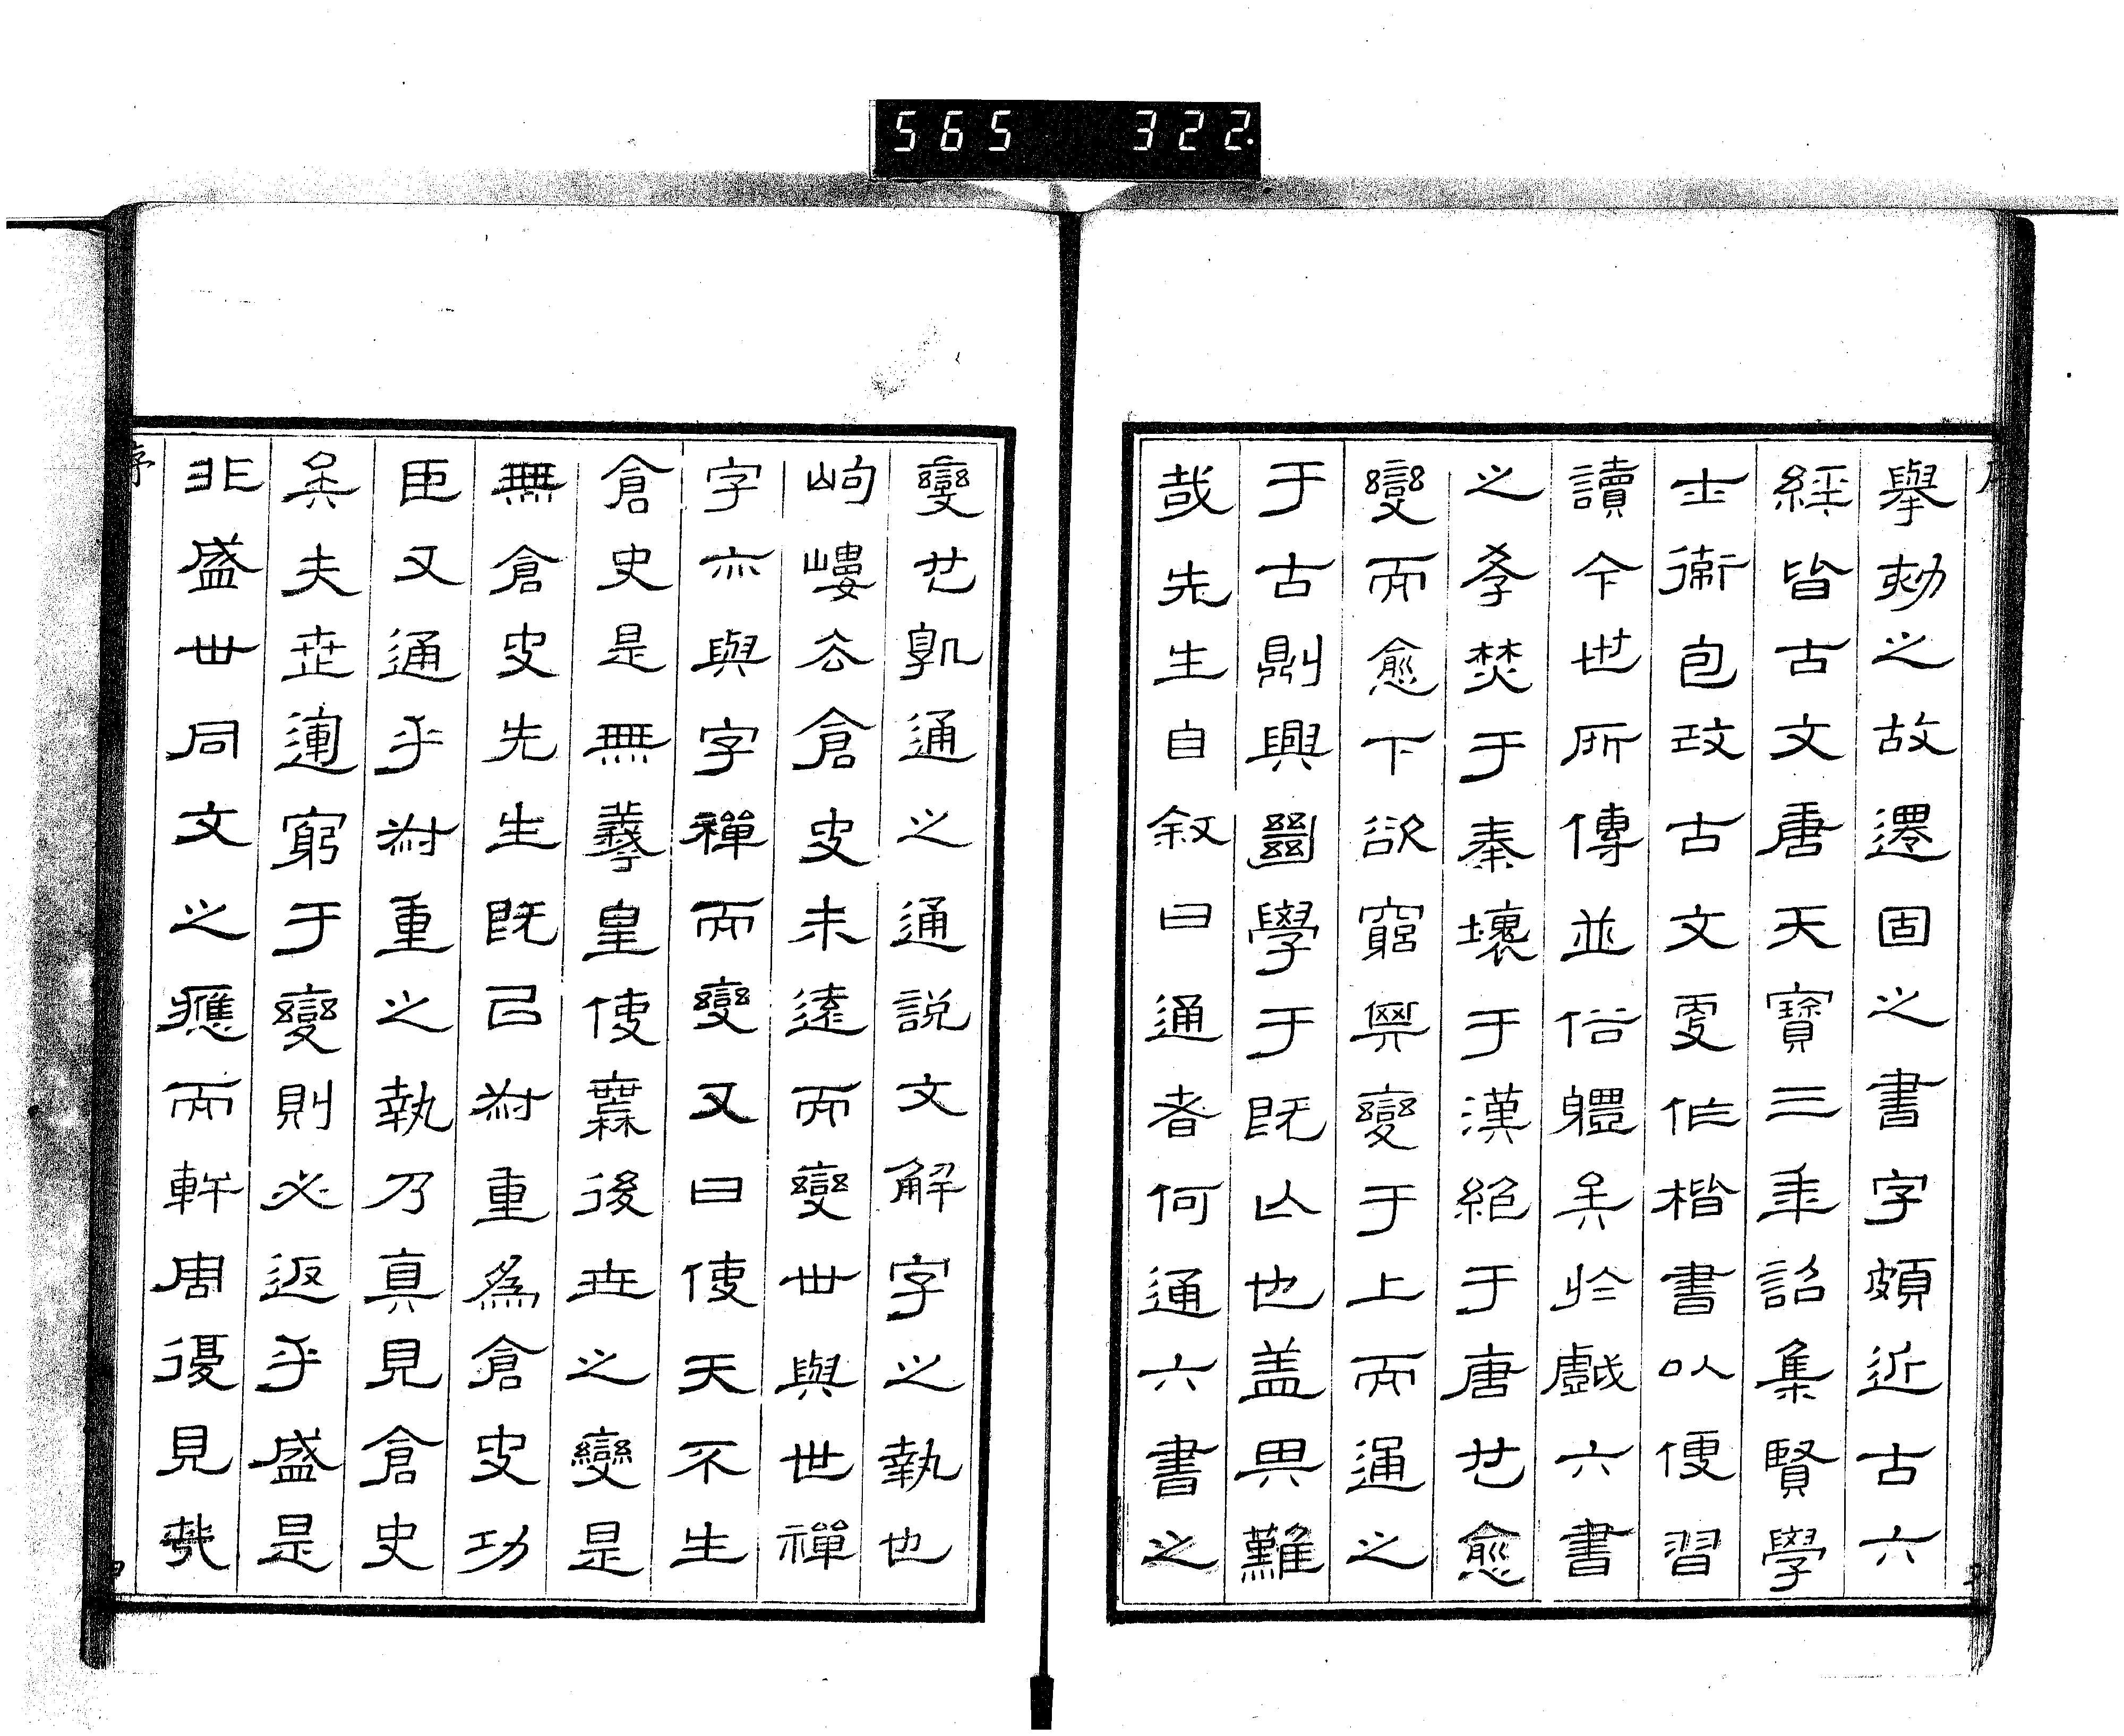 565 322
舉劾之故還固之書字頗近古六
經皆古文唐天寶三年詔集賢學
士衞包改古文更作楷書以便習
讀今世所傳並俗軆矣於戲六書
之學焚于秦壞于漢絕于唐世愈
變而愈下欲窮其變于上而通之
于古則興斯學于旣亡也蓋異難
哉先生自敘曰通者何通六書之
變也孰通之通說文解字之執也
岣嶁去倉史未遠而變世與世禪
字亦與字禪而變又曰使天不生
倉史是無羲皇使無後世之變是
無倉史先生旣已對重為倉史功
臣又通乎對重之執乃真見倉史
矣夫世運窮于變則必返乎盛是
非盛世同文之應而軒周復見哉
序